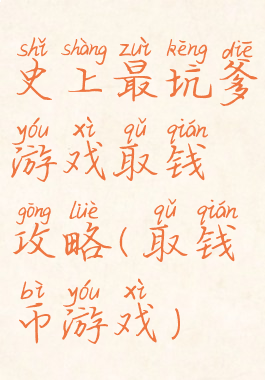 shǐ shàng zuì kēng diē
史上最坑爹
yóu xì qǔ qián
游戏取钱
gōng lüè qǔ qián
攻略(取钱
bì yóu xì
币游戏)